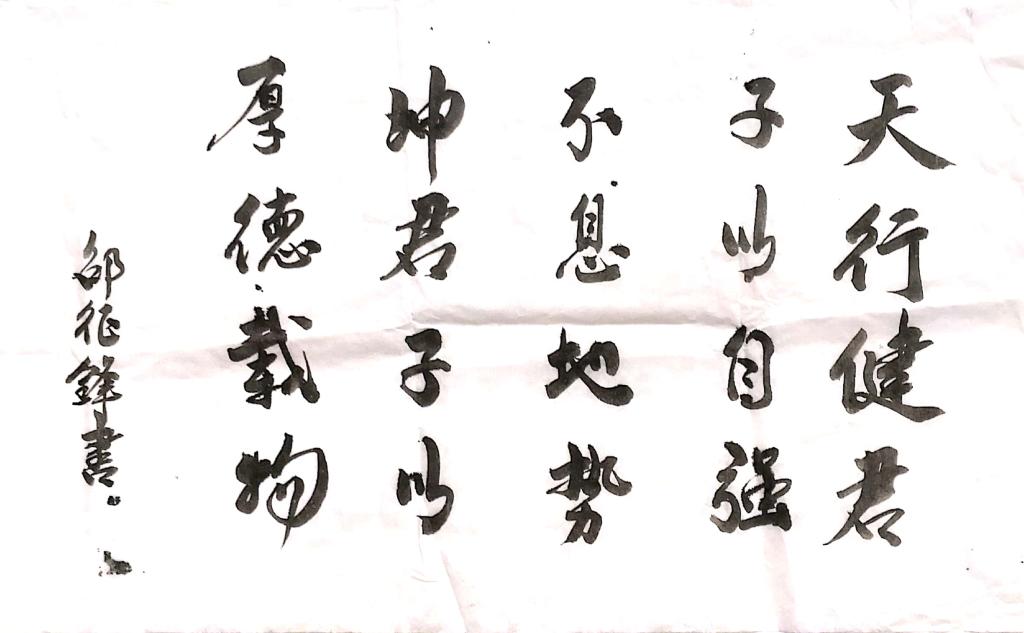 天行健君
子以自强
不息地势
坤君子以
厚德载物
邵征锋書